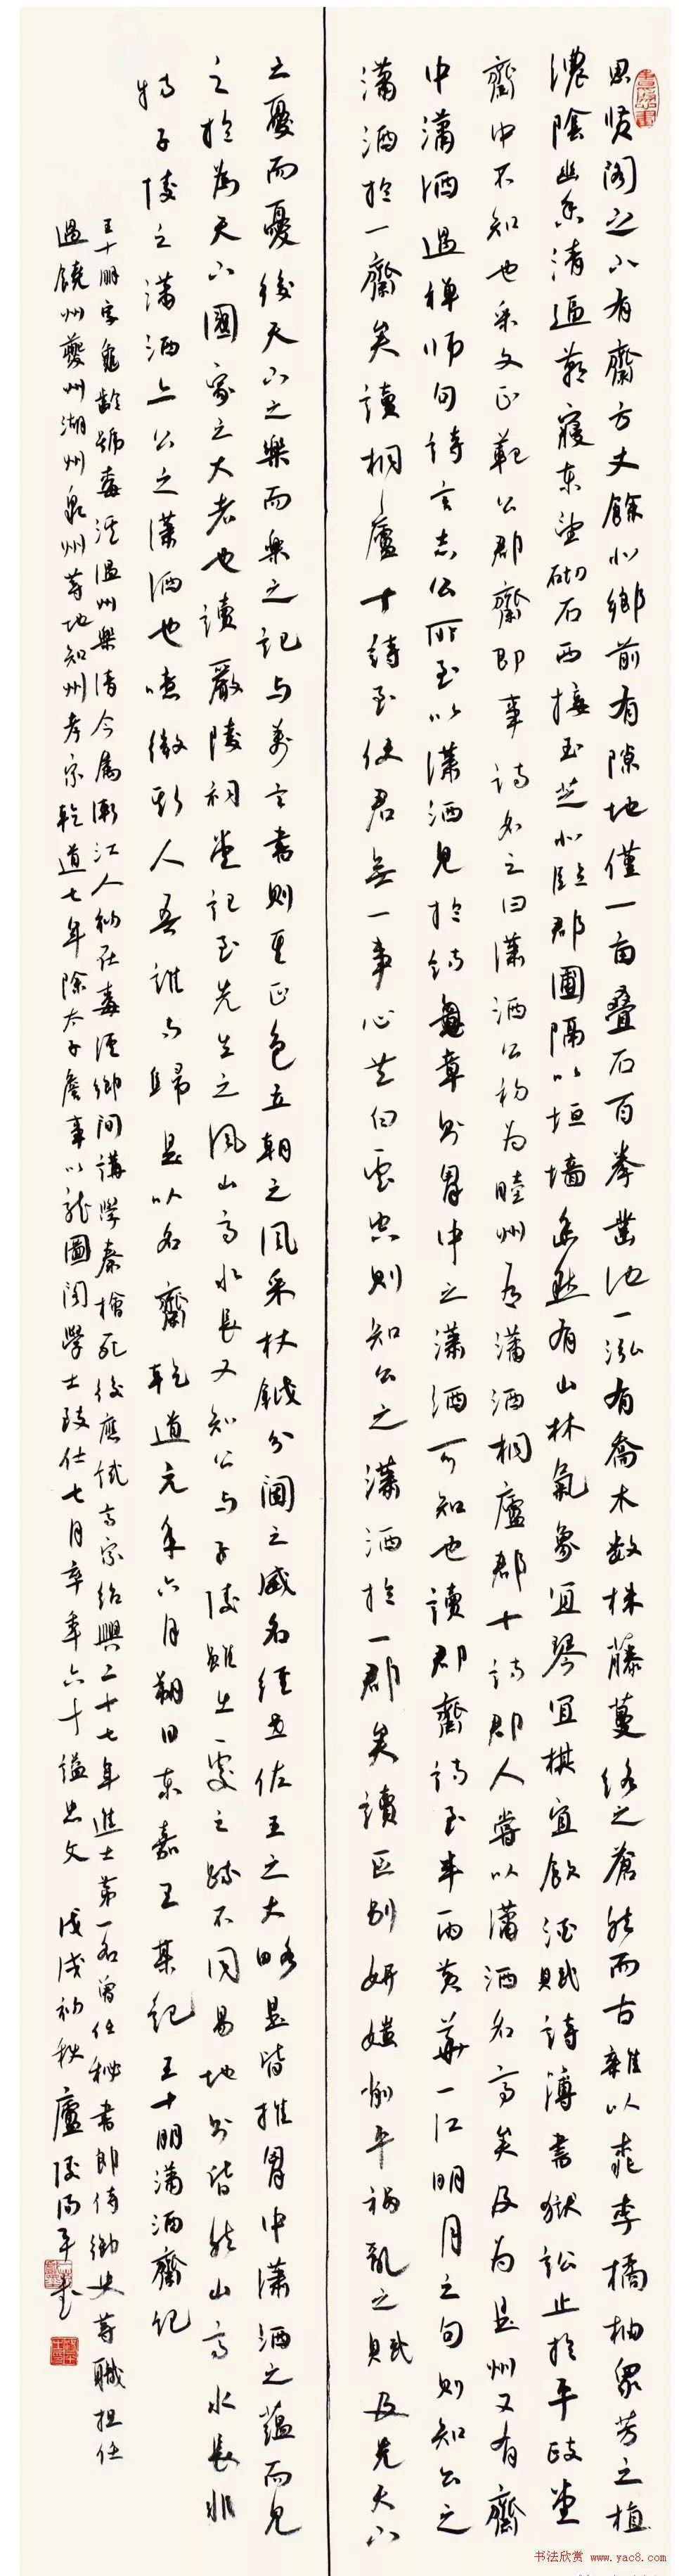 思贤阁之下有齋方丈餘北鄉前有隙地僅一亩叠石百拳凿池一泓有喬木数株藤蔓络之蒼然而古雜以桃李橘柚众芳之植
濃陰幽香清逼燕寝東望砌石西接玉芝北臨郡圃隔以垣墙幽然有山林氣象宜琴宜棋宜飲酒賦詩簿書獄訟止於平政堂
齋中不知也采文正範公郡齋即事诗名之曰瀟洒公初为睦州有瀟洒桐廬郡十诗郡人嘗以瀟洒名亭矣及为是州又有齋
中瀟洒過禅师句詩言志公所至以瀟洒見於篇章則胃中之瀟洒可知也讀郡齋诗至半雨黄華一江明月之句則知公之
瀟洒於一齋矣讀桐廬十詩至使君無一事心共白雲空則知公之瀟洒於一郡矣讀区别妍媸削平禍亂之賦及先天下
之憂而憂後天下之樂而樂之記与萬言書則其正色立朝之風采杖鉞分閫之威名經世佐王之大略是皆推胃中瀟洒之蕴而見
之於為天下國家之大者也讀嚴陵祠堂記至先生之風山高水長又知公与子陵雖出處之跡不同易地則皆然山高水長非
特子陵之瀟洒亦公之瀟洒也噫微斯人吾誰与歸是以名齋乾道元年六月朔日東嘉王某記王十朋瀟洒齋记
王十朋字龜齡號梅溪温州樂清今属浙江人初在梅溪鄉间講學秦檜死後應試高宗绍興二十七年進士第一名曾任秘書郎侍御史等職担任
過饒州夔州湖州泉州等地知州孝宗乾道七年除太子詹事以龙圖阁學士致仕七月卒年六十謚忠文 戊戌初秋 廬陵
书法欣赏 www.yac8.com